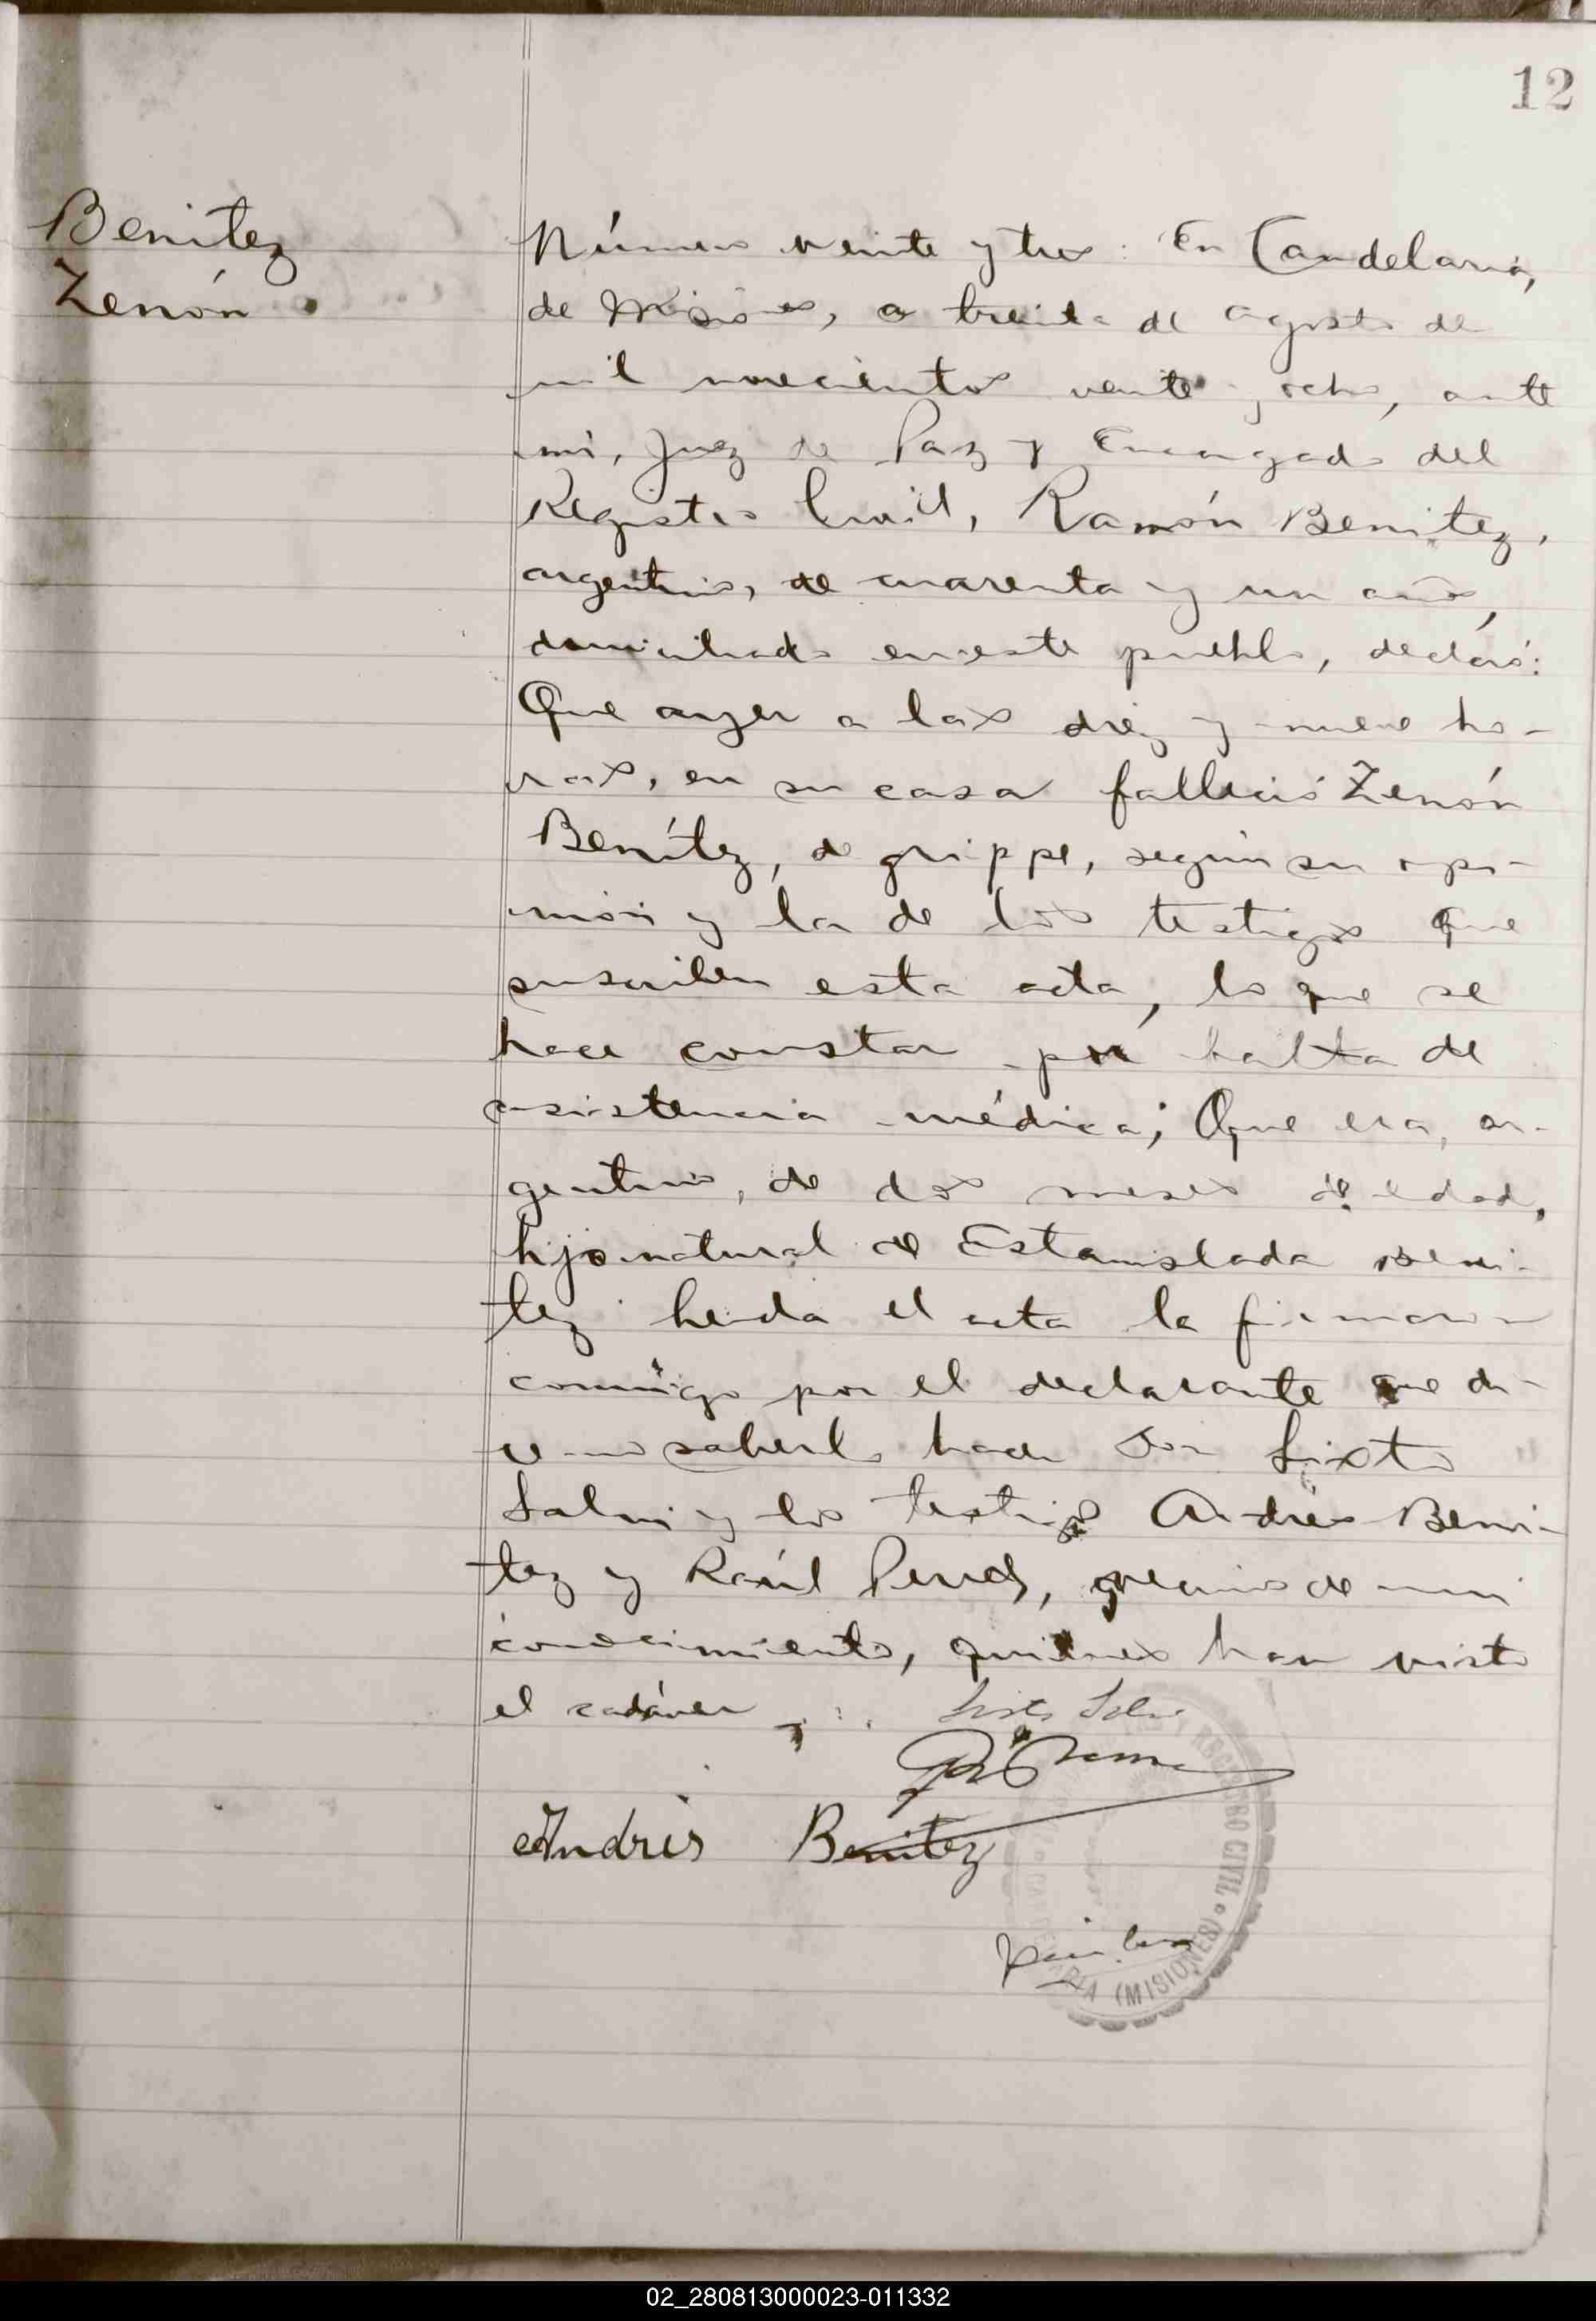 12
Benitez
Zenón
Número veinte y tres: En Candelaria,
de Misiones, a treinta de agosto de
mil novecientos veinte y ocho, ante
mi, Juez de Paz y Encargado del
Registro Civil, Ramón Benitez,
argentino, de cuarenta y un años,
domiciliado en este pueblo, declaró:
Que ayer a las diez y nueve ho-
ras, en su casa falleció Zenón
Benítez, de grippe, según su opi-
nión y la de los testigos que
suscriben esta acta, lo que se
hace constar por falta de
asistencia médica; Que era, ar-
gentino, de dos meses de edad,
hijo natural de Estanislada Beni-
tez leida el acta la firmaron
conmigo por el declarante que di-
ce no saberlo hacer Don Sixto
y los testigos Andrés Beni-
tez y Raúl de mi
conocimiento, quienes han visto
el cadáver
Sixto
Andrés Benitez
Y REGISTRO CIVIL • CANDELARIA (MISIONES) •
02_280813000023-011332